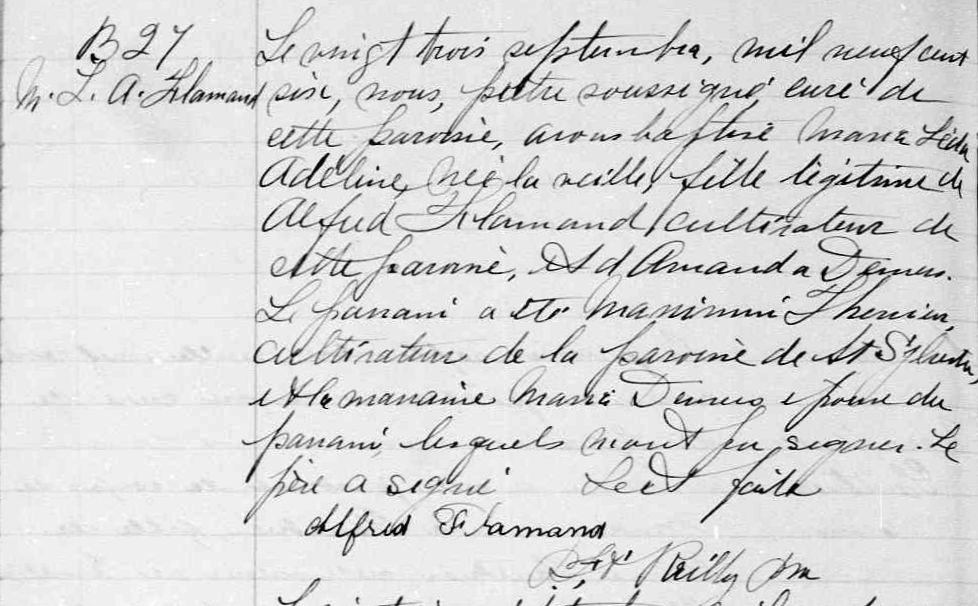 B 27
M. L. A. Flamand
Le vingt trois septembre, mil neuf cent
six, nous, prêtre soussigné, curé de
cette paroisse, avons baptisé Maria Léda
Adéline, née la veille, fille légitime de
Alfred Flamand, cultivateur de
cette paroisse, et d'Amanda Demers.
Le parrain a été Maximin Therrien,
cultivateur de la paroisse de St Sylvestre,
et la marraine Maria Demers épouse du
parrain, lesquels n'ont pu signer. Le
père a signé Lect faite
Alfred Flamand
Reilly Ptre